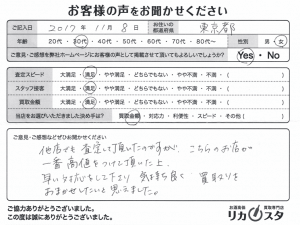 お客様の声をお聞かせください
ご記入日 2017年 11月 8日 お住いの都道府県 東京都
年齢 20代・30代・40代・50代・60代・70代・80代〜 性別 男・女
ご意見・ご感想を弊社ホームページにお客様の声として掲載させて頂いてもよろしいでしょうか? Yes・No
査定スピード 大満足・満足・どちらでもない・やや不満・不満・( )
スタッフ接客 大満足・満足・どちらでもない・やや不満・不満・( )
買取金額 大満足・満足・どちらでもない・やや不満・不満・( )
当店をお選びいただきました決め手は? 買取金額・対応力・利便性・スピード・その他( )
ご意見・ご感想などぜひお聞かせください
他店でも査定して頂いたのですが、こちらのお店が
一番高値をつけて頂いた上、
早い対応をして下さり 気持ち良く 買取りを
おまかせしたいと思えました。
ご協力ありがとうございました。
この度は誠にありがとうございました。
お酒高価買取専門店
リカスタ